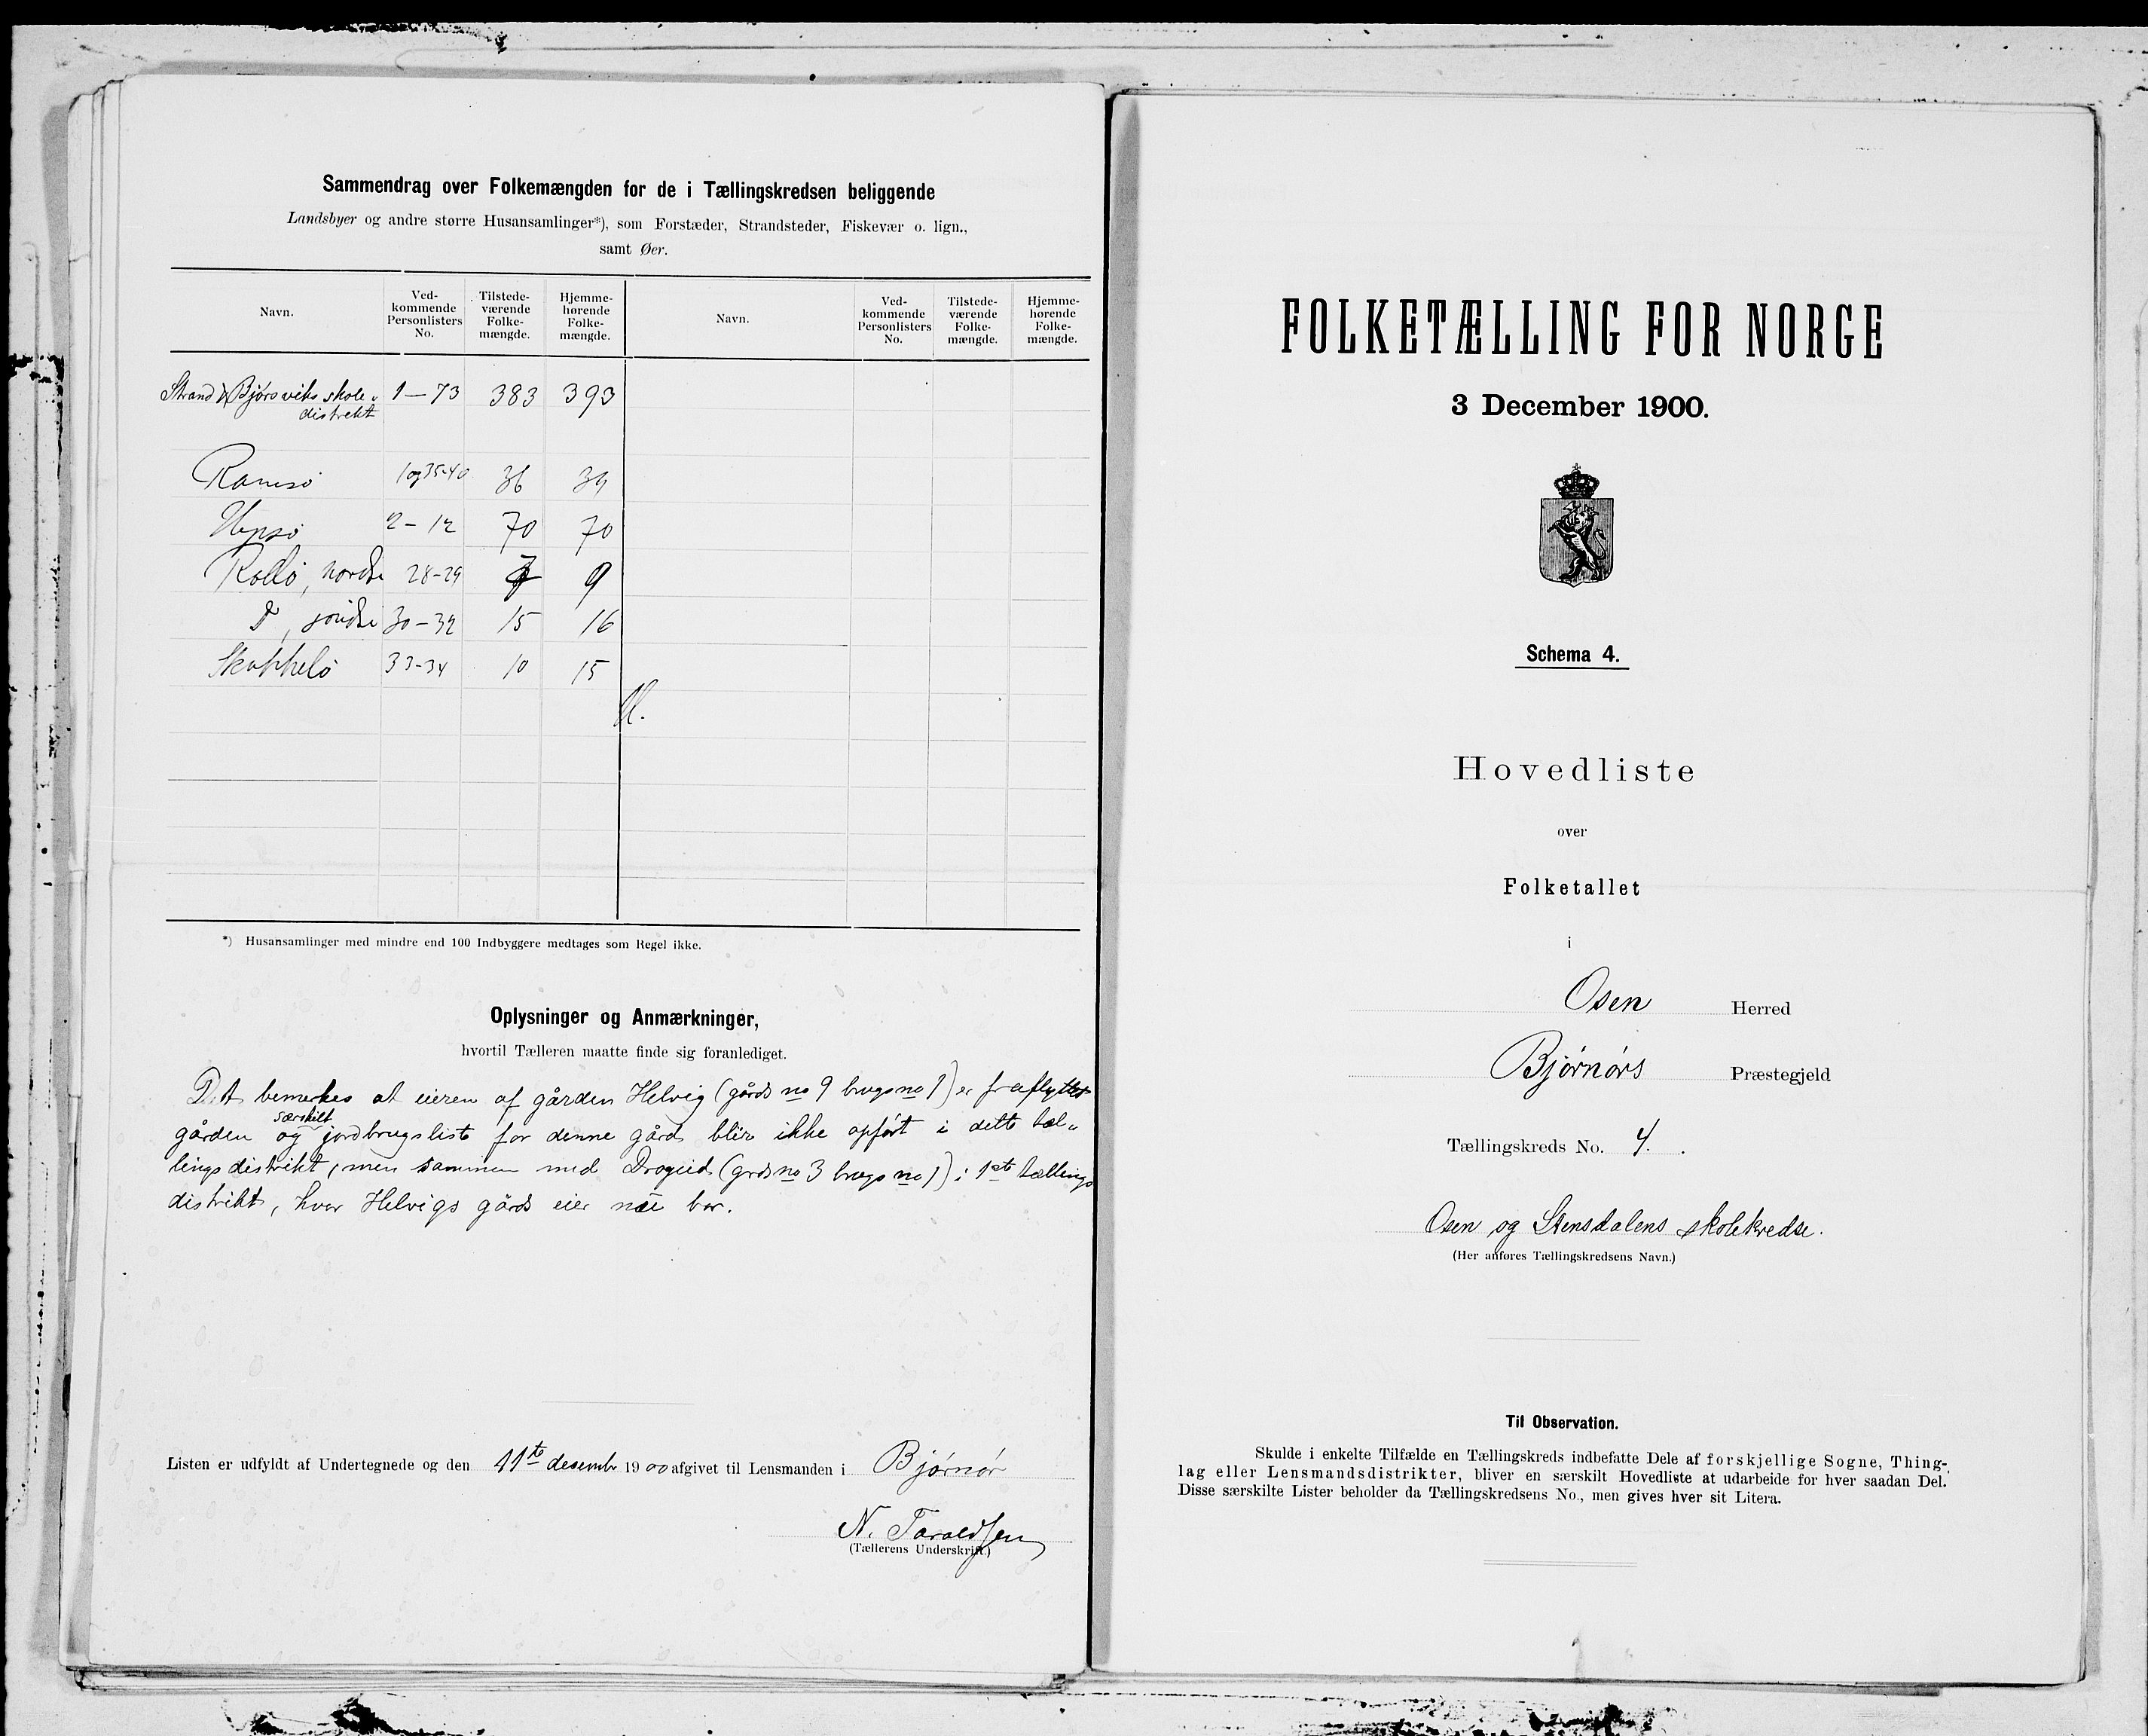 Sammendrag over Folkemængden for de i Tællingskredsen beliggende
Landsbyer og andre større Husansamlinger*), som Forstæder, Strandsteder, Fiskevær o. lign.,
samt Øer.
Navn. Ved-kommende Personlisters No. Tilstede-værende Folke-mængde. Hjemme-hørende Folke-mængde. Navn. Ved-kommende Personlisters No. Tilstede-værende Folke-mængde. Hjemme-hørende Folke-mængde.
Strand & Bjørsviks skole- 1–73 383 393
distrekt
Ramsø 1 og 35-40 36 39
2–12 70 70
nordre 28-29 7 9
Do, søndre 30–32 15 16
33-34 10 15
*) Husansamlinger med mindre end 100 Indbyggere medtages som Regel ikke.
Oplysninger og Anmærkninger,
hvortil Tælleren maatte finde sig foranlediget.
Det bemerkes at eieren af gården Helvig (gårds no 9 brugs no 1) er fraflyttet
særskilt
gården og jordbrugsliste for denne gård blir ikke opført i dette tæl-
lingsdistrikt, men sammen med Drageid (grds no 3 brugs no 1) i 1ste tællings
distrikt, hvor Helvigs gårds eier nu bor.
Listen er udfyldt af Undertegnede og den 11te desembr 1900 afgivet til Lensmanden i Bjørnør
N. Taraldsen
(Tællerens Underskrift.)
FOLKETÆLLING FOR NORGE
3 December 1900.
Schema 4.
Hovedliste
over
Folketallet
i
Osen Herred
Bjørnørs Præstegjeld
Tællingskreds No. 4.
Osen og Stensdalens skolekredse.
(Her anføres Tællingskredsens Navn.)
Til Observation.
Skulde i enkelte Tilfælde en Tællingskreds indbefatte Dele af forskjellige Sogne, Thing-
lag eller Lensmandsdistrikter, bliver en særskilt Hovedliste at udarbeide for hver saadan Del.
Disse særskilte Lister beholder da Tællingskredsens No., men gives hver sit Litera.